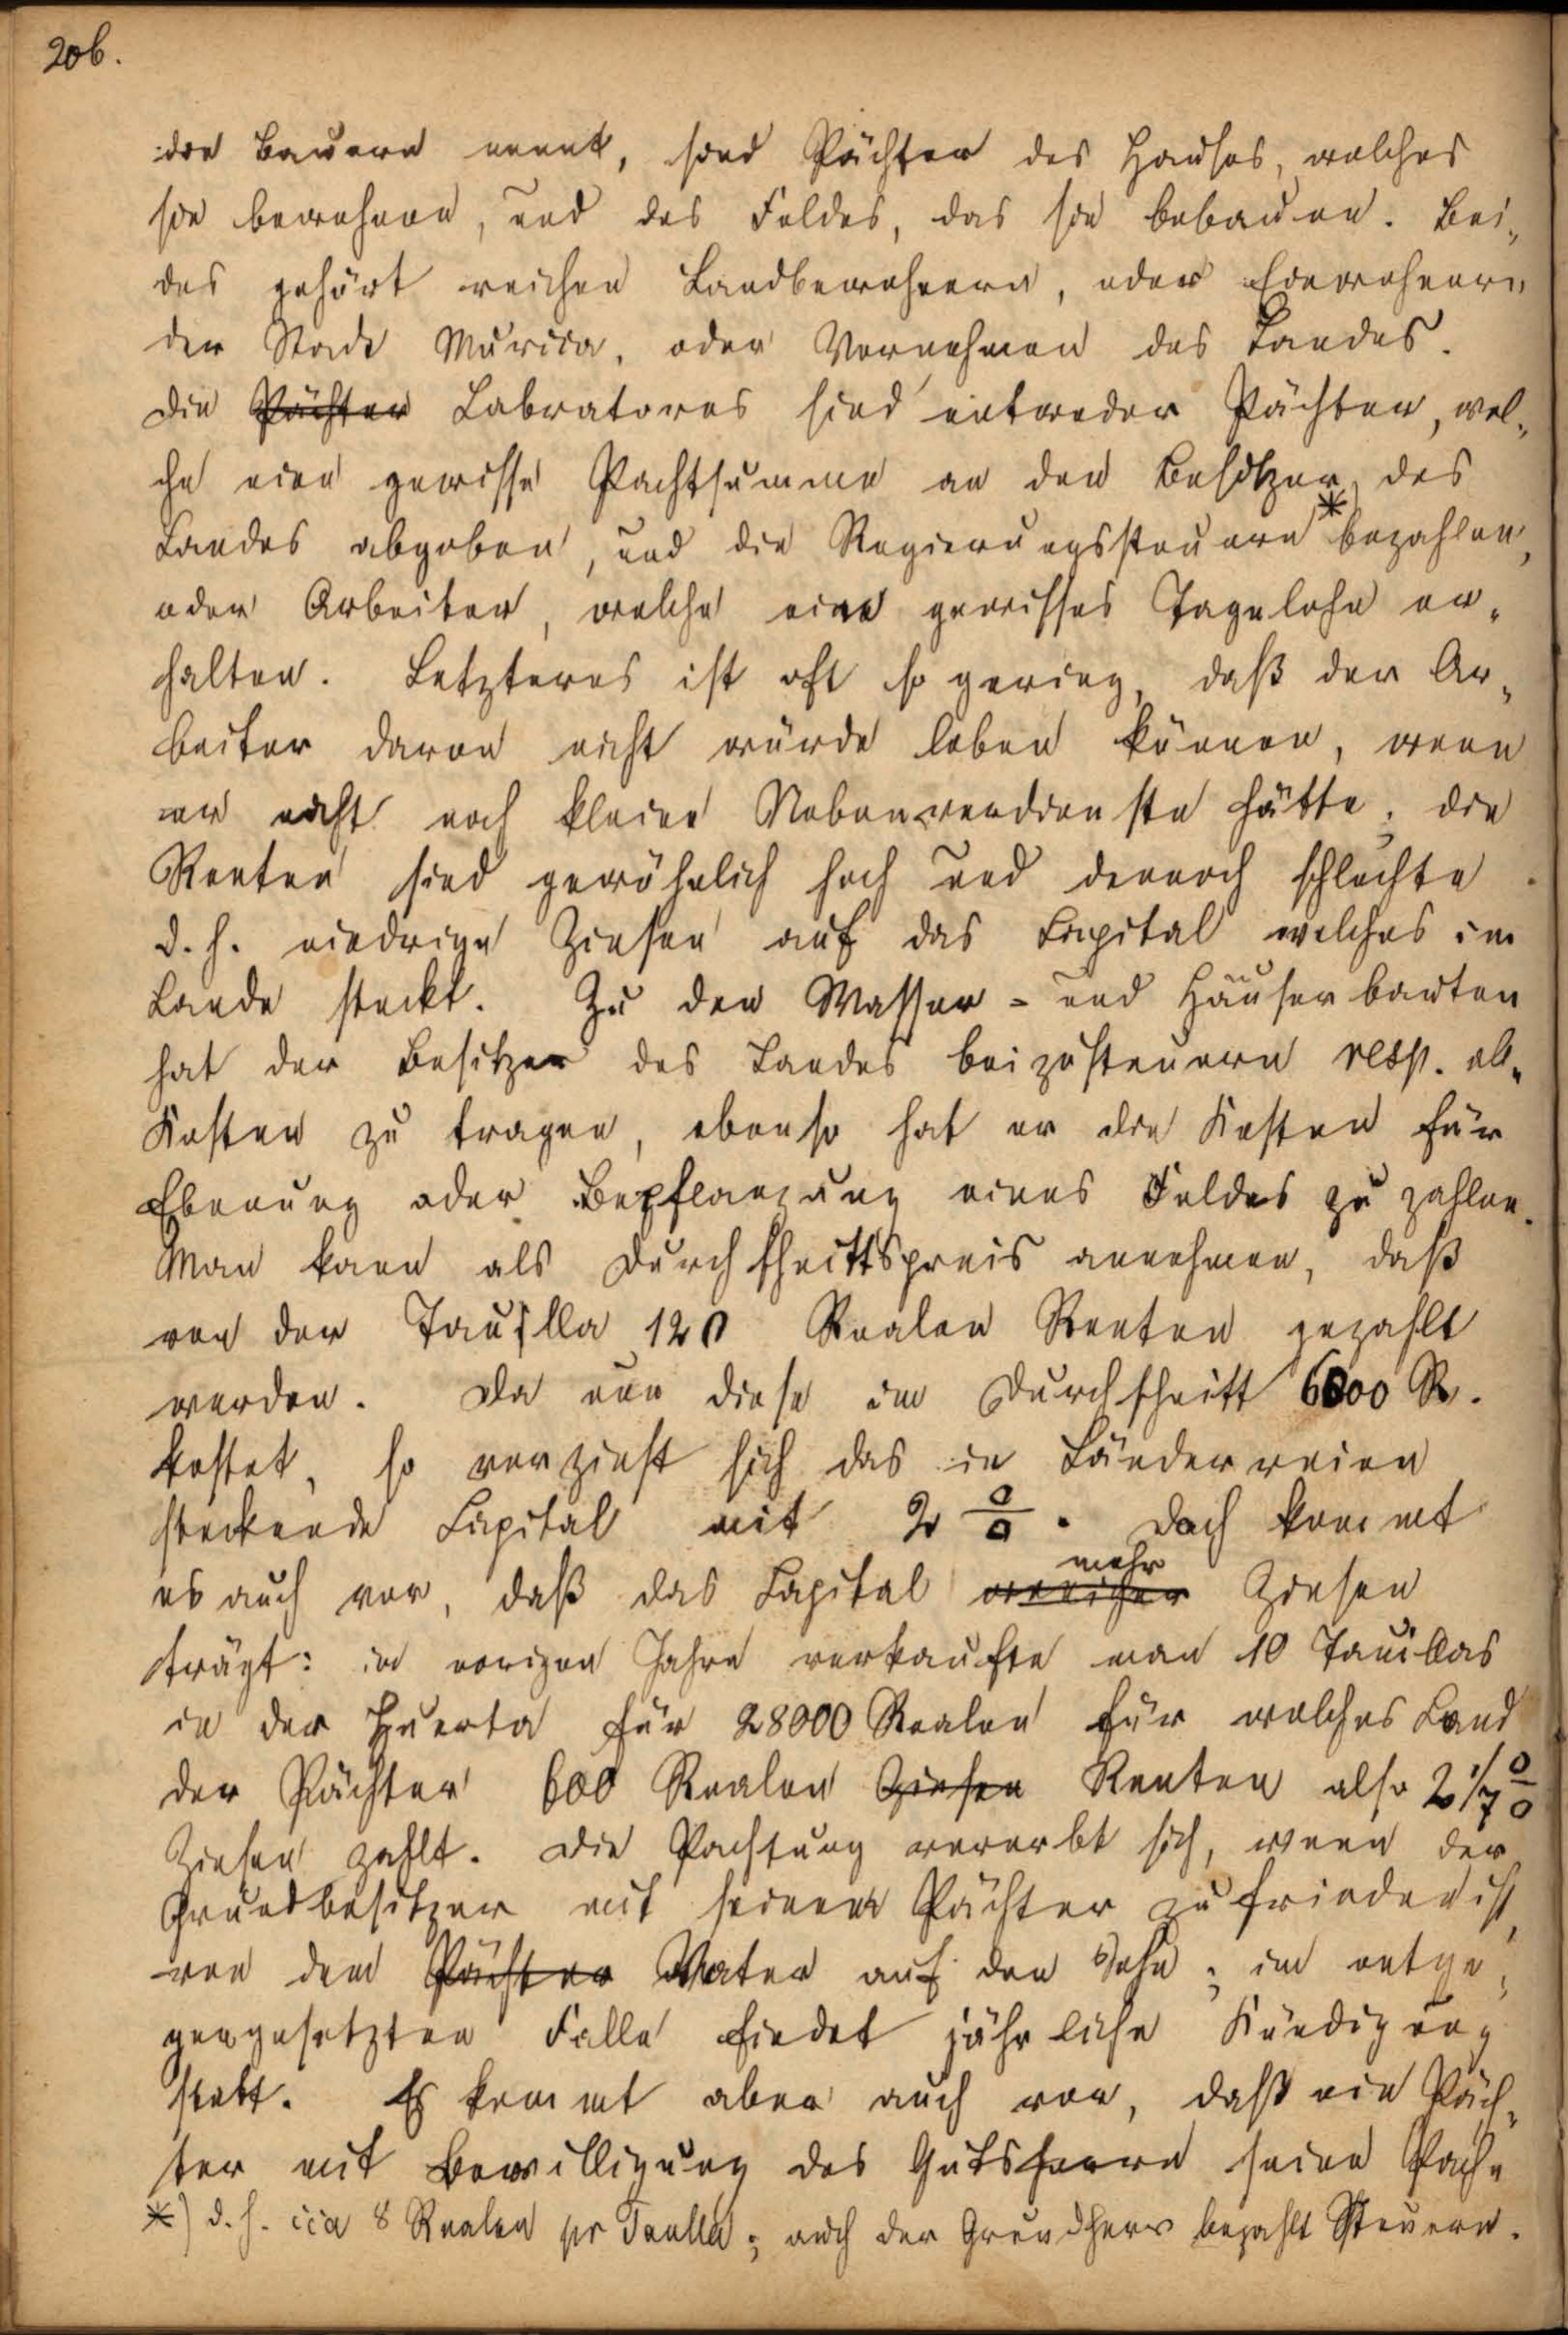 206.
die Bauern nennt, sind Pächter des Hauses, welches
sie bewohnen, und des Feldes, das sie bebauen. Bei„
des gehört reichen Landbewohnern, oder Einwohnern
der Stadt Murcia, oder Vornehmen des Landes.
Die Pächter Labratores sind entweder Pächter, wel„
che eine gewisse Pachtsumme an den Besitzer des
Landes abgeben, und die Regierungssteuern * bezahlen,
oder Arbeiter, welche eine gewisses Tagelohn er„
halten. Letzteres ist oft so gering, daß der Ar„
beiter davon nicht würde leben können, wenn
er nicht noch kleine Nebenverdienste hätte; die
Renten sind gewöhnlich hoch und dennoch schlechte
d. h. niedrige Zinsen auf das Capital welches im
Lande steckt. Zu den Wasser- und Häuserbauten
hat der Besitzer des Landes beizusteuern resp. all„
Kosten zu tragen, ebenso hat er die Kosten für
Ebenung oder Bepflanzung eines Feldes zu zahlen.
Man kann als Durchschnittspreis annehmen, daß
von der Taulla 120 Realen Renten gezahlt
werden. Da nun diese im Durchschnitt 6000 R.
kostet, so verzinst sich das in Länderreien
steckende Capital mit 2 %. Doch kommt
es auch vor, daß das Capital weniger mehr Zinsen
trägt: im vorigen Jahre verkaufte man 10 Tauillas
in der Huerta für 28000 Realen für welches Land
der Pächter 600 Realen Zinsen Renten also 2 1/7 %
Zinsen zahlt. Die Pachtung vererbt sich, wenn der
Grundbesitzer mit seinem Pächter zufrieden ist,
von dem Pächter Vater auf den Sohn; im entge„
gengesetzten Falle findet jährliche Kündigung
statt. Es kommt aber auch vor, daß ein Päch„
ter mit Bewilligung des Gutsherrn seine Pach„
*) d. h. cca 8 Realen pr Taulla; auch der Grundherr bezahlt Steuern.